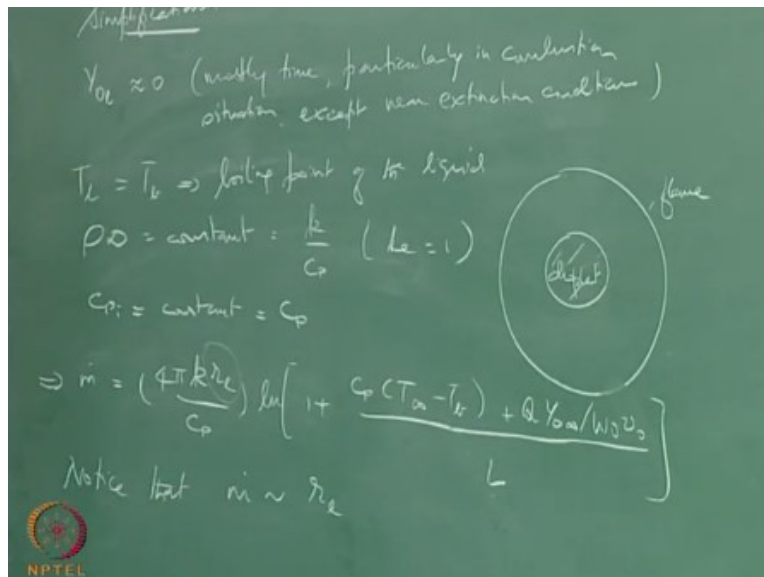 Simplification
Y_{Ol} ≈ 0 (mostly true, particularly in combustion
situation, except near extinction conditions)
T_l = T_b ⇒ boiling point of the liquid
ρD = constant = k/C_p (Le = 1)
C_{pi} = constant = C_p
⇒ ṁ = (4πk r_l / C_p) ln[1 + (C_p(T_∞ - T_b) + Q Y_{O∞}/W_O ν_O) / L]
Notice that ṁ ~ r_l
flame
droplet
NPTEL